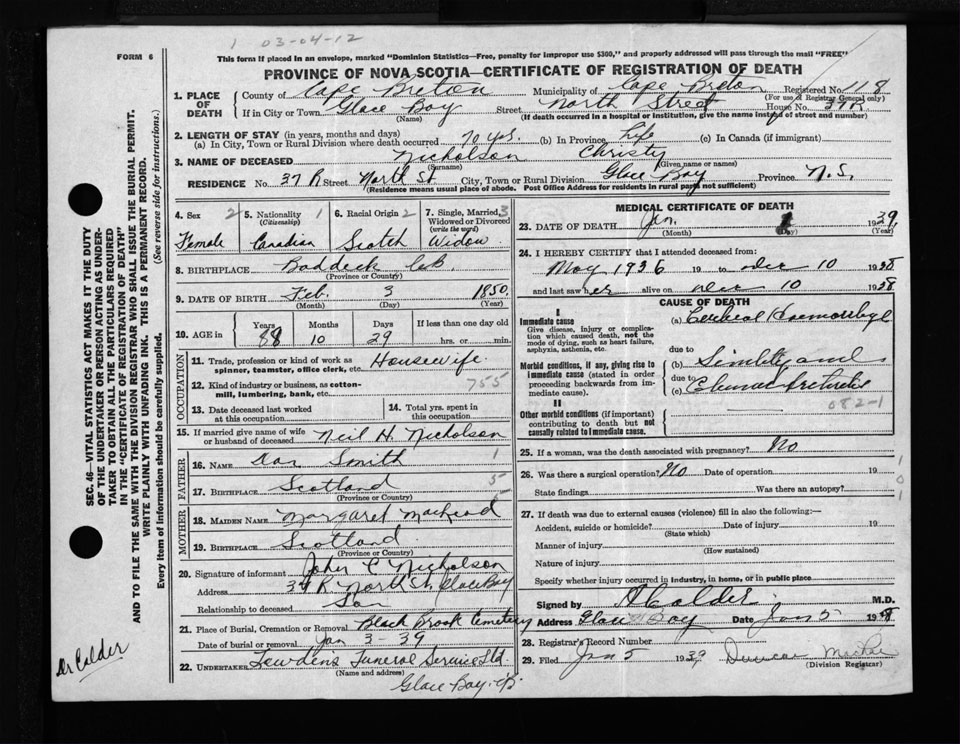 1 03-04-12
FORM 6
This form if placed in an envelope, marked "Dominion Statistics—Free, penalty for improper use $300," and properly addressed will pass through the mail "FREE"
PROVINCE OF NOVA SCOTIA—CERTIFICATE OF REGISTRATION OF DEATH
1. PLACE OF DEATH County of Cape Breton Municipality of Cape Breton Registered No. 118
(For use of Registrar General only)
If in City or Town Glace Bay Street North Street House No. 37R
(Name) (If death occurred in a hospital or institution, give the name instead of street and number)
2. LENGTH OF STAY (in years, months and days)
(a) In City, Town or Rural Division where death occurred 70 yrs. (b) In Province Life (c) In Canada (if immigrant)
3. NAME OF DECEASED Nicholson Christy
(Surname) (Given name or names)
RESIDENCE No. 37 R Street North St City, Town or Rural Division Glace Bay Province N.S.
(Residence means usual place of abode. Post Office Address for residents in rural parts not sufficient)
4. Sex 2 Female
5. Nationality 1 (Citizenship) Canadian
6. Racial Origin 2 Scotch
7. Single, Married, 3 Widowed or Divorced (write the word) Widow
8. BIRTHPLACE Baddeck C.B.
(Province or Country)
9. DATE OF BIRTH Feb. 3 1850
(Month) (Day) (Year)
10. AGE in Years 88 Months 10 Days 29 If less than one day old hrs. or min.
OCCUPATION
11. Trade, profession or kind of work as spinner, teamster, office clerk, etc. Housewife
12. Kind of industry or business, as cotton-mill, lumbering, bank, etc. 755
13. Date deceased last worked at this occupation
14. Total yrs. spent in this occupation
15. If married give name of wife or husband of deceased Neil H. Nicholson
FATHER
16. NAME Dan Smith 1
17. BIRTHPLACE Scotland 5
(Province or Country)
MOTHER
18. MAIDEN NAME Margaret MacLeod
19. BIRTHPLACE Scotland
(Province or Country)
20. Signature of informant John C Nicholson
Address 37 R. North St, Glace Bay
Relationship to deceased Son
21. Place of Burial, Cremation or Removal Black Brook Cemetery
Date of burial or removal Jan 3-39
22. UNDERTAKER Funeral Service Ltd.
(Name and address)
Glace Bay
MEDICAL CERTIFICATE OF DEATH
23. DATE OF DEATH Jan. 1 1939
(Month) (Day) (Year)
24. I HEREBY CERTIFY that I attended deceased from:
May 1936 19 to Dec 10 1938
and last saw her alive on Dec 10 1938
CAUSE OF DEATH
I
Immediate cause
Give disease, injury or complication which caused death, not the mode of dying, such as heart failure, asphyxia, asthenia, etc.
(a) Cerebral Haemorrhage
due to
Morbid conditions, if any, giving rise to immediate cause (stated in order proceeding backwards from immediate cause).
(b) Senility and
due to
(c) Chronic
II
082-1
Other morbid conditions (if important) contributing to death but not causally related to immediate cause.
25. If a woman, was the death associated with pregnancy? No
26. Was there a surgical operation? No Date of operation 19
State findings Was there an autopsy?
27. If death was due to external causes (violence) fill in also the following:—
Accident, suicide or homicide? Date of injury 19
(State which)
Manner of injury
(How sustained)
Nature of injury
Specify whether injury occurred in industry, in home, or in public place
Signed by Calder M.D.
Address Glace Bay Date Jan 5 19
28. Registrar's Record Number
29. Filed Jan 5 1939 Duncan
(Division Registrar)
1
0
1
SEC. 46—VITAL STATISTICS ACT MAKES IT THE DUTY
OF THE UNDERTAKER OR PERSON ACTING AS UNDER-
TAKER TO OBTAIN ALL THE PARTICULARS REQUIRED
IN THE "CERTIFICATE OF REGISTRATION OF DEATH"
AND TO FILE THE SAME WITH THE DIVISION REGISTRAR WHO SHALL ISSUE THE BURIAL PERMIT.
WRITE PLAINLY WITH UNFADING INK. THIS IS A PERMANENT RECORD.
Every item of information should be carefully supplied. (See reverse side for instructions.)
Dr Calder